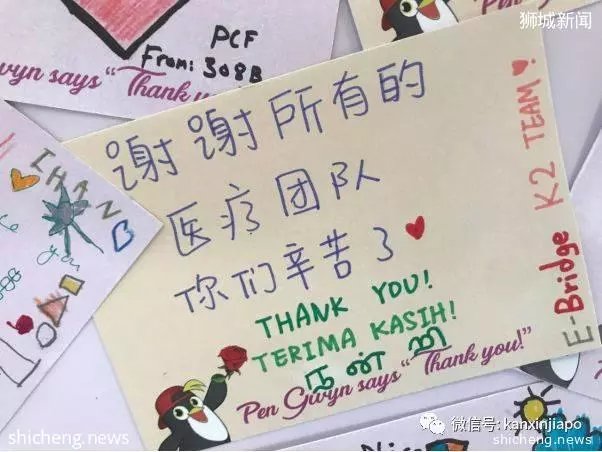 狮城新闻
PCF
From: 308B
Gwyn says "Thank you!"
谢谢所有的
医疗团队
你们辛苦了
THANK YOU!
TERIMA KASIH!
நன்றி
Pen Gwyn says "Thank you!"
E-Bridge K2 TEAM!
微信号: kanxinjiapo
shicheng.news
shicheng.news